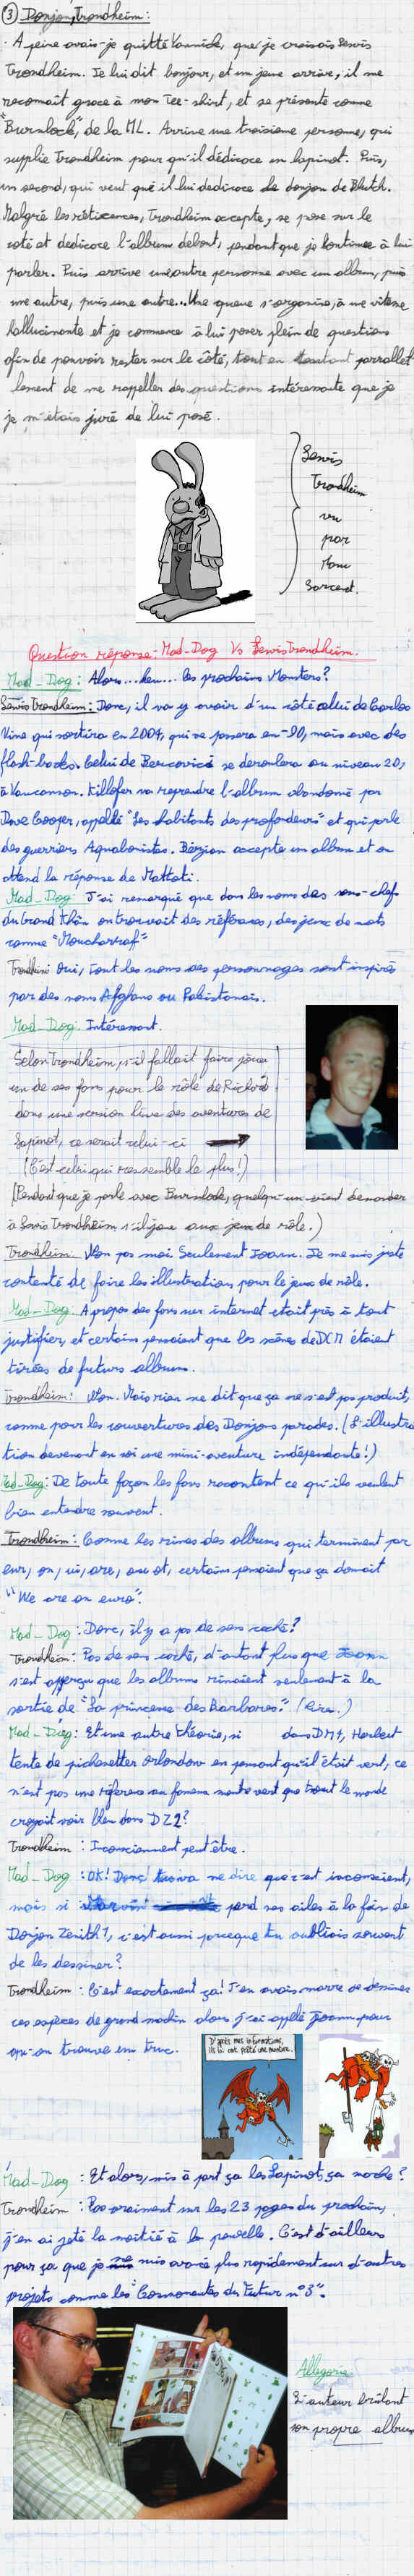 ③ Donjon, Trondheim:
. A peine avais-je quitté Yannick, que je croisais Lewis
Trondheim. Je lui dit bonjour, et un jeune arrive, il me
reconnaît grace à mon Tee-shirt, et se présente comme
"Burnlock", de la ML. Arrive une troisième personne, qui
supplie Trondheim pour qu'il dédicace un lapinot. Puis,
un second, qui veut qu'il lui dedicace le donjon de Blutch.
Malgré les réticences, Trondheim accepte, se pose sur le
coté et dedicace l'album debout, pendant que je continue à lui
parler. Puis arrive une autre personne avec un album, puis
une autre, puis une autre... Une queue s'organise, à une vitesse
hallucinante et je commence à lui poser plein de questions
afin de pouvoir rester sur le côté, tout en parrallel
lement de me rappeller des questions intéressante que je
je m'étais juré de lui posé.
Lewis
Trondheim
vu
par
Manu
Larcenet.
Question réponse: Mad-Dog Vs Lewis Trondheim.
Mad-Dog: Alors...heu... les prochains Monsters?
Lewis Trondheim: Donc, il va y avoir d'un côté celui de Carlos
Nine qui sortira en 2004, qui se passera en -90, mais avec des
flash-backs. Celui de Bercovici se deroulera au niveau 20,
à Vaucanson. Killofer va reprendre l'album abandonné par
Dave Cooper, appellé "Les habitants des profondeurs" et qui parle
des guerriers Aquabonistes. Bézian accepte un album et on
attend la réponse de Mattoti.
Mad-Dog: J'ai remarqué que dans les noms des sous-chefs
du Grand Khân on trouvait des références, des jeux de mots
comme "Moucharraf"
Trondheim: Oui, tout les noms des personnages sont inspirés
par des noms Afghans ou Pakistanais.
Mad-Dog: Intéressant.
Selon Trondheim, s'il fallait faire jouer
un de ses fans pour le rôle de Richard
dans une version live des aventures de
Lapinot, ce serait celui-ci
(C'est celui qui ressemble le plus!)
(Pendant que je parle avec Burnlock, quelqu'un vient demander
à Lewis Trondheim s'il joue aux jeux de rôle.)
Trondheim: Non pas moi. Seulement Joann. Je me suis juste
contenté de faire les illustrations pour le jeux de rôle.
Mad-Dog: A propos des fans sur internet etait près à tout
justifier, et certains pensaient que les scènes de DCM étaient
tirées de futurs albums.
Trondheim: Non. Mais rien ne dit que ça ne s'est pas produit,
comme pour les couvertures des Donjons parades. (L'illustra
tion devenant en soi une mini-aventure indépendante!)
Mad-Dog: De toute façon les fans racontent ce qu'ils veulent
bien entendre souvent.
Trondheim: Comme les rimes des albums qui terminent par
eur, on, ui, are, ou ot, certains pensaient que ça donnait
"We are on euro".
Mad-Dog: Donc, il y a pas de sens caché?
Trondheim: Pas de sens caché, d'autant plus que Joann
s'est apperçu que les albums rimaient seulement à la
sortie de "La princesse des Barbares." (Rire.)
Mad-Dog: Et une autre théorie, si dans DM4, Herbert
tente de orlondow en pensant qu'il était vert, ce
n'est pas une référence au fameux monte vert que tout le monde
croyait voir bleu dans DZ2?
Trondheim: Inconsciemment peut être.
Mad-Dog: OK! Donc tu va me dire que c'est inconscient,
mais si perd ses ailes à la fin de
Donjon Zenith 1, c'est aussi parceque tu oubliais souvent
de les dessiner?
Trondheim: C'est exactement ça! J'en avais marre de dessiner
ces espèces de grand machin alors j'ai appellé Joann pour
qu'on trouve un truc.
D'après mes informations,
ils lui ont prêté une monture.
Mad-Dog: Et alors, mis à part ça les Lapinot, ça marche?
Trondheim: Pas vraiment sur les 23 pages du prochain,
j'en ai jeté la moitié à la poubelle. C'est d'ailleurs
pour ça que je me suis avancé plus rapidement sur d'autres
projets comme les "Cosmonautes du Futur n°3".
Allégorie
L'auteur brûlant
son propre album